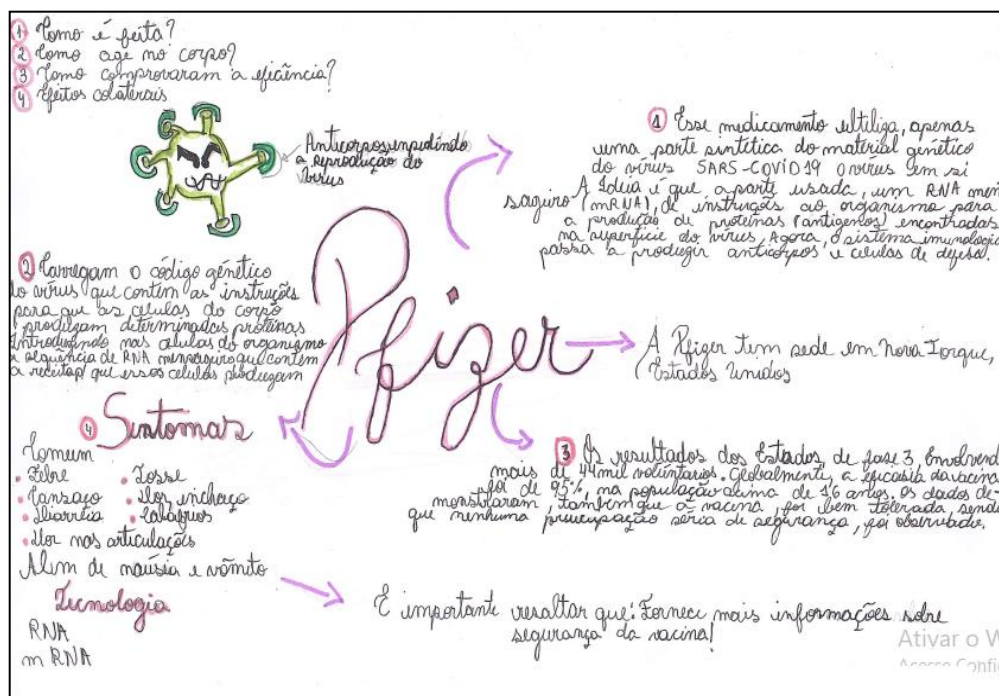 1 Como é feita?
2 Como age no corpo?
3 Como comprovaram a eficiência?
4 Efeitos colaterais
Anticorpos impedindo
a reprodução do
vírus
1 Esse medicamento ultiliza, apenas
uma parte sintética do material genético
do vírus SARS-COVID19 o vírus em si
A Ideia é que a parte usada, um RNA men
sagiro (mRNA), de instruções ao organismo para
a produção de proteínas (antigenos) encontradas
na superfície do vírus, Agora, o sistema imunologic
passa a produzir anticorpos e celulas de defesa.
2 Carregam o código genético
do vírus que contem as instruções
para que as células do corpo
produzam determinadas proteínas
Introduzindo nas celulas do organismo
a sequência de RNA mensagiro que contem
a receita p/ que essas celulas produzam
Pfizer
A Pfizer tem sede em Nova Iorque,
Estados Unidos
4 Sintomas
Comum
• Febre • Tosse
• Cansaço • Dor, inchaço
• Diarréia • Calafrios
• Dor nas articulações
Alem de nausia e vômito
3 Os resultados dos Estados de fase 3, Envolvend
mais de 44 mil voluntários. Globalmente, a eficásia da vacina
foi de 95%, na população acima de 16 anos. Os dados de-
monstraram, tambem que a vacina, foi bem tolerada, send
que nenhuma preucupação séria de segurança, foi observada.
Tecnologia
RNA
m RNA
É importante resaltar que: Fornece mais informações sobre
segurança da vacina!
Ativar o W
Acesse Confi